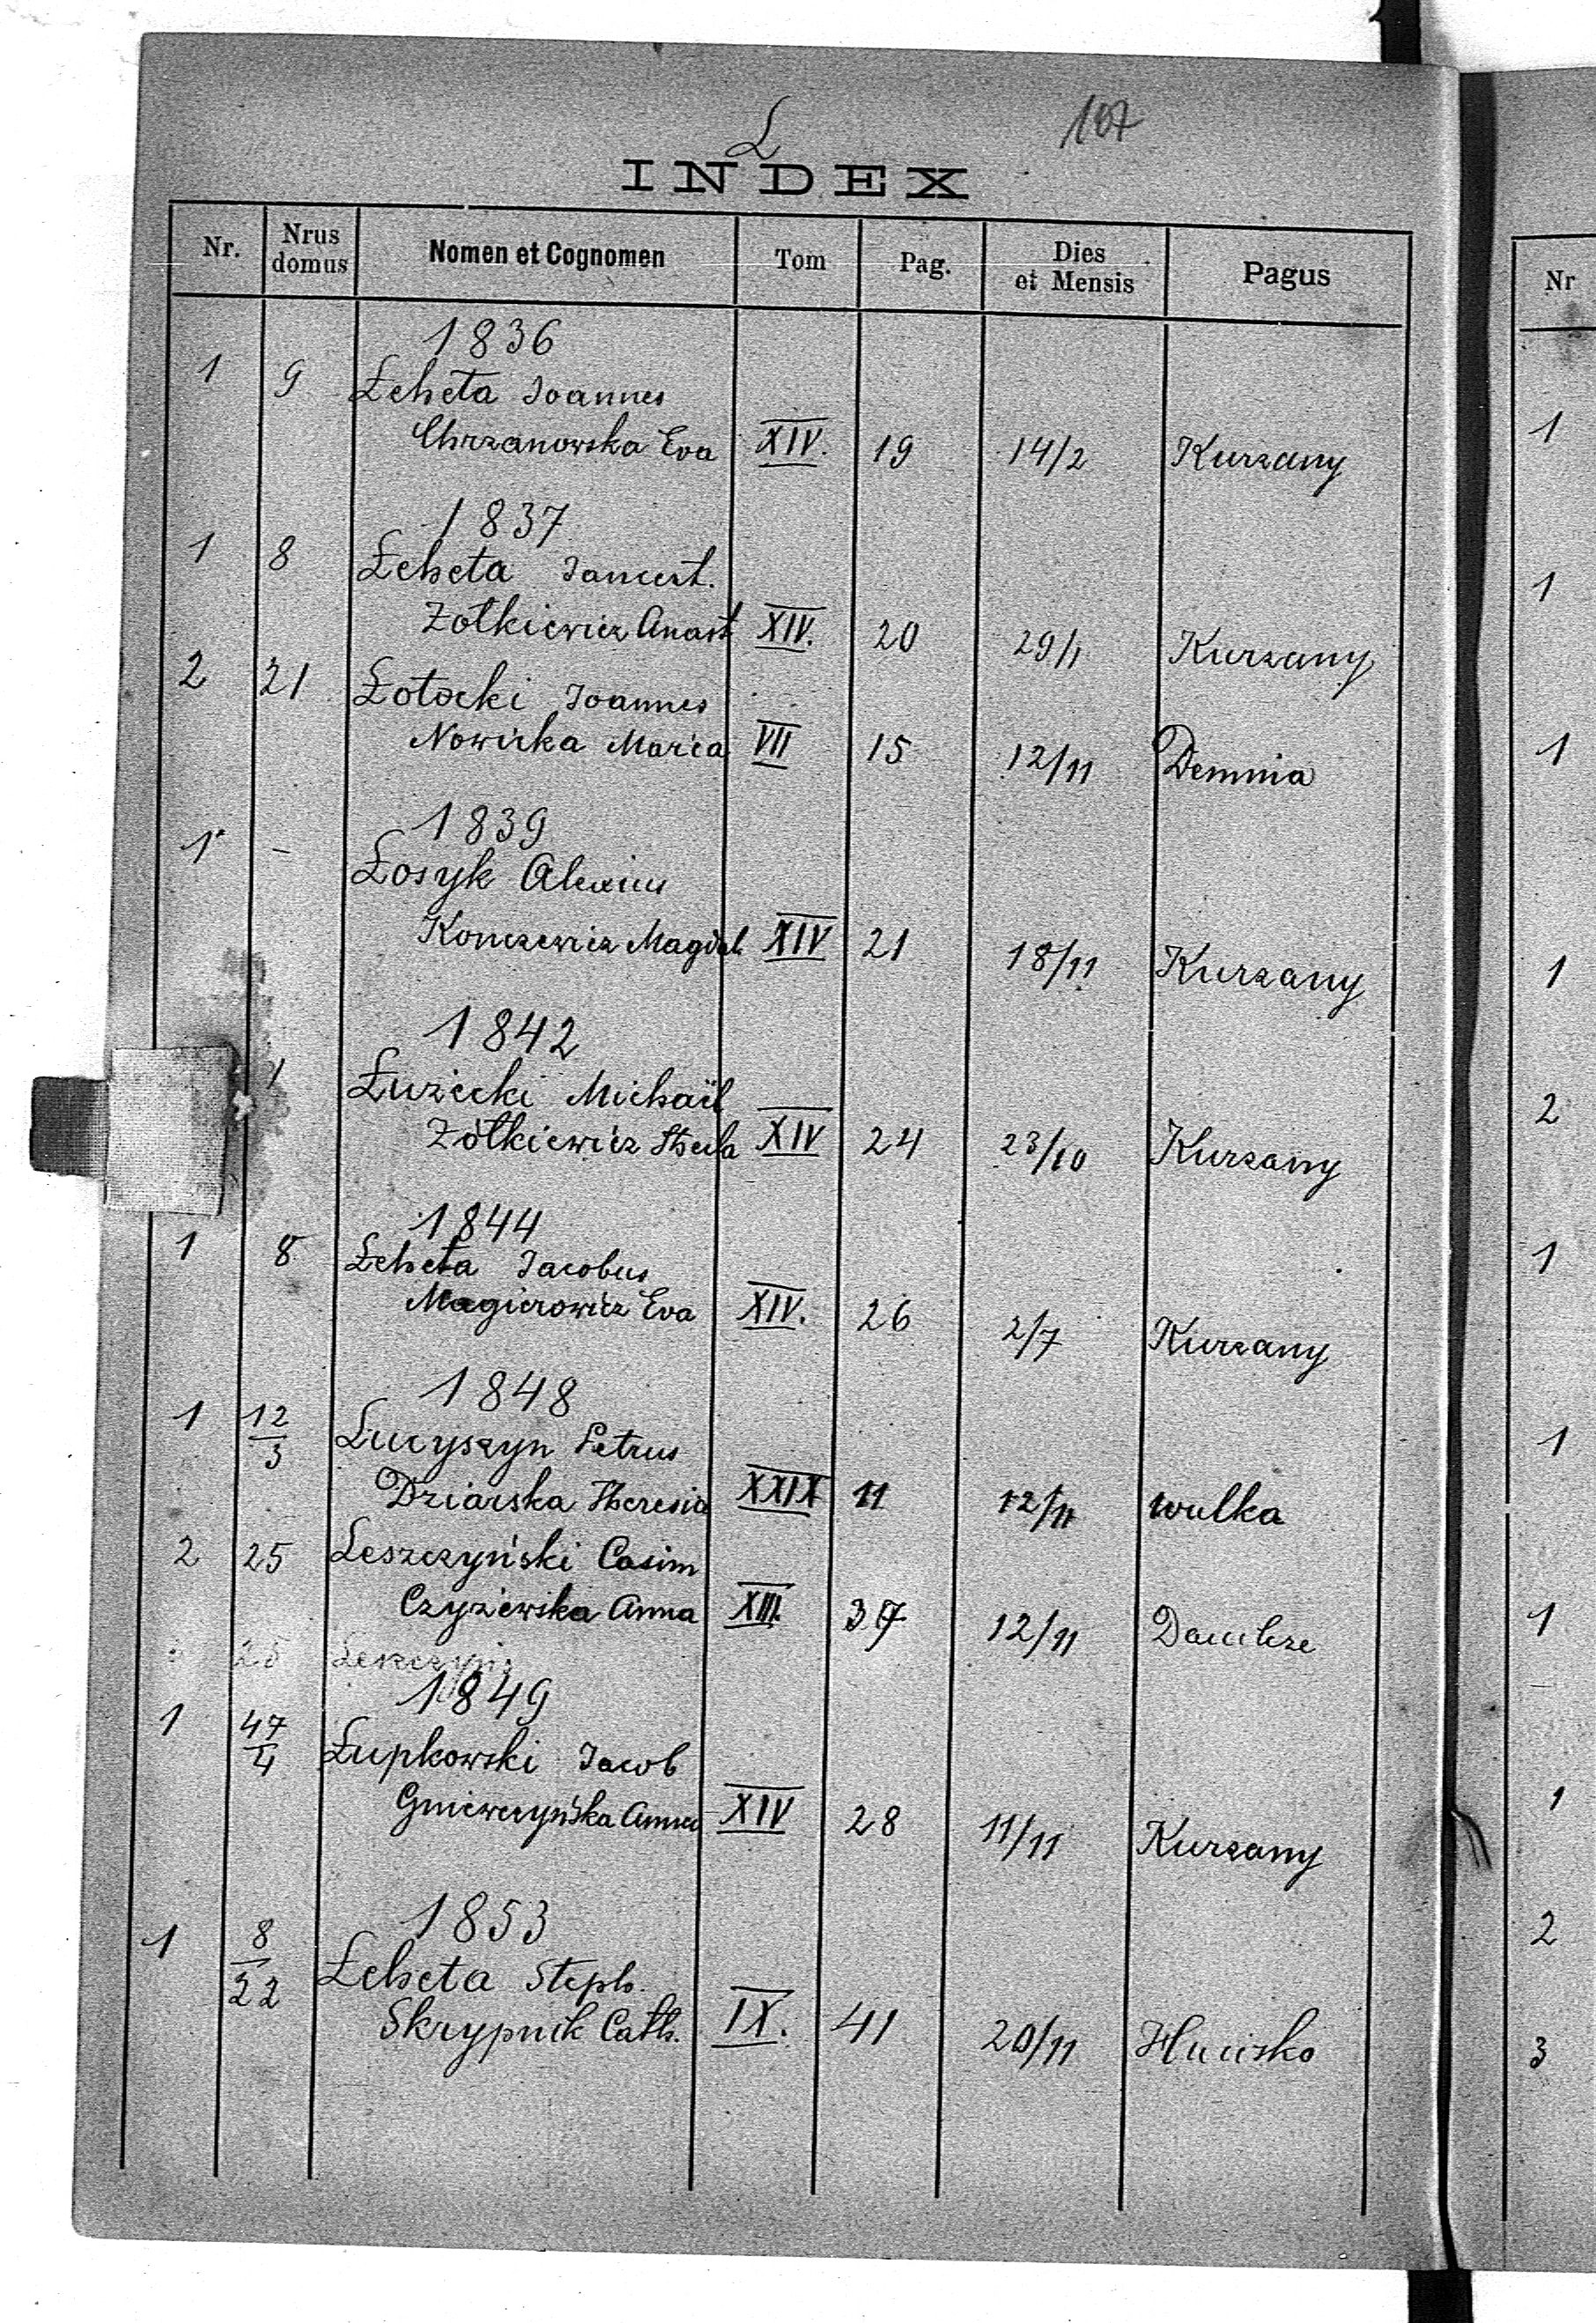 Ł 187
INDEX
Nr. Nrus domus Nomen et Cognomen Tom Pag. Dies et Mensis Pagus
1836
1 9 Łeheta Joannes
Chrzanowska Eva XIV. 19 14/2 Kurzany
1837
1 8 Łeheta
Żołkiewicz Anast XIV. 20 29/1 Kurzany
2 21 Łotocki Joannes
Nowicka Maria VII 15 12/11 Demnia
1839
1 - Łosyk Alexius
Konczewicz Magdal. XIV 21 18/11 Kurzany
1842
1 Łużecki Michaël
Żółkiewicz Thecla XIV 24 23/10 Kurzany
1844
1 8 Łeheta Jacobus
Magierowicz Eva XIV. 26 2/7 Kurzany
1848
1 12/3 Łucyszyn Petrus
Dziarska Theresia XXIX 11 12/11 Wulka
2 25 Leszczyński Casim
Czyżewska Anna XIII. 37 12/11
25
1849
1 47/4 Łupkowski Jacob
Gniewczyńska Anna XIV 28 11/11 Kurzany
1853
1 8/22 Łeheta Steph.
Skrypnik Cath. IX. 41 20/11 Hucisko
Nr
1
1
1
1
2
1
1
1
1
2
3